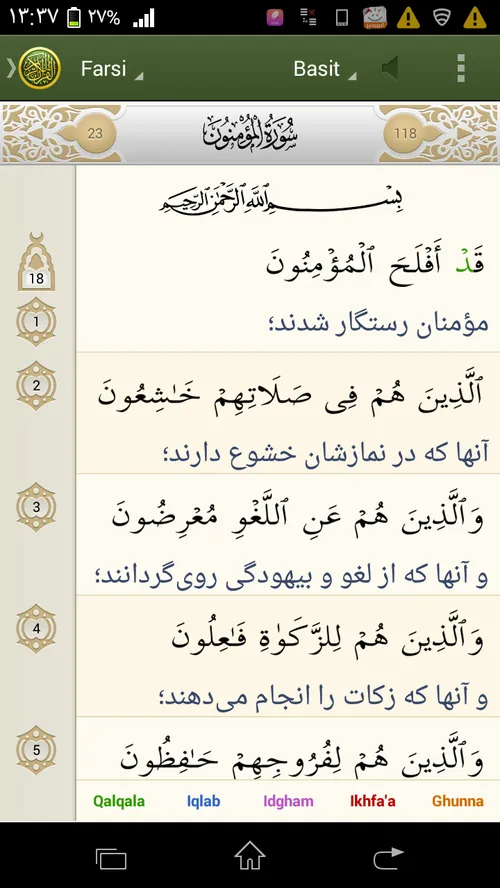 ۱۳:۳۷ ۲۷%
Farsi Basit
23 سُورَةُ الْمُؤْمِنُونَ 118
بِسْمِ اللَّهِ الرَّحْمَٰنِ الرَّحِيمِ
18
قَدْ أَفْلَحَ ٱلْمُؤْمِنُونَ
1
مؤمنان رستگار شدند؛
2
ٱلَّذِينَ هُمْ فِى صَلَاتِهِمْ خَـٰشِعُونَ
آنها که در نمازشان خشوع دارند؛
3
وَٱلَّذِينَ هُمْ عَنِ ٱللَّغْوِ مُعْرِضُونَ
و آنها که از لغو و بیهودگی روی‌گردانند؛
4
وَٱلَّذِينَ هُمْ لِلزَّكَوٰةِ فَـٰعِلُونَ
و آنها که زکات را انجام می‌دهند؛
5
وَٱلَّذِينَ هُمْ لِفُرُوجِهِمْ حَـٰفِظُونَ
Qalqala Iqlab Idgham Ikhfa'a Ghunna